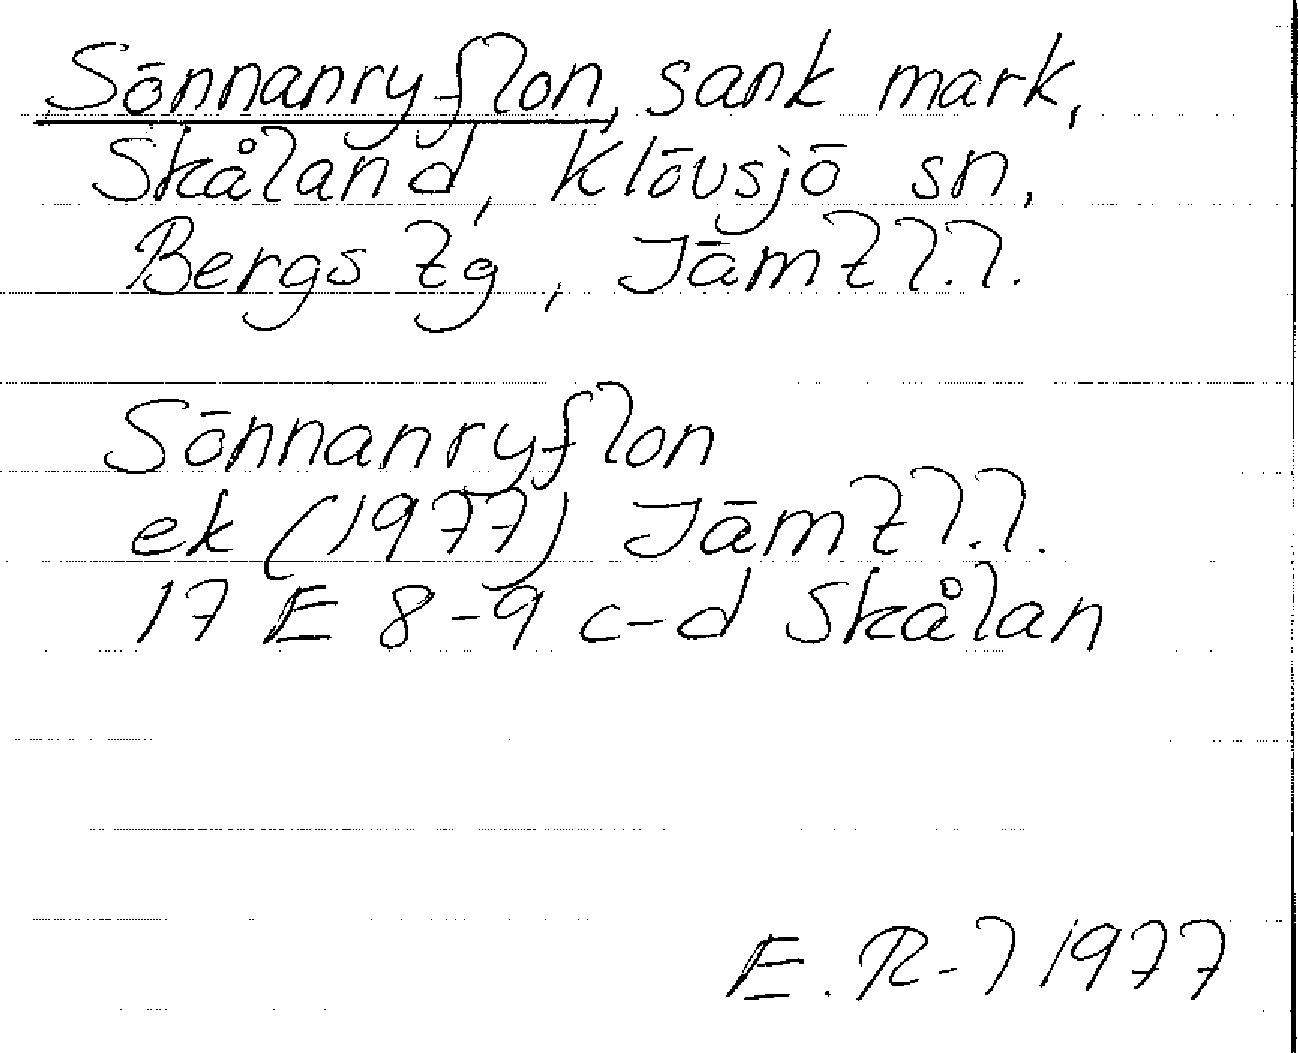 Sönnanryflon, sank mark,
Skåland, Klövsjö sn,
Bergs tg, Jämtl.l.
Sönnanryflon
ek (1977) Jämtl.l.
17 E 8-9 c-d Skålan
E. R-l 1977